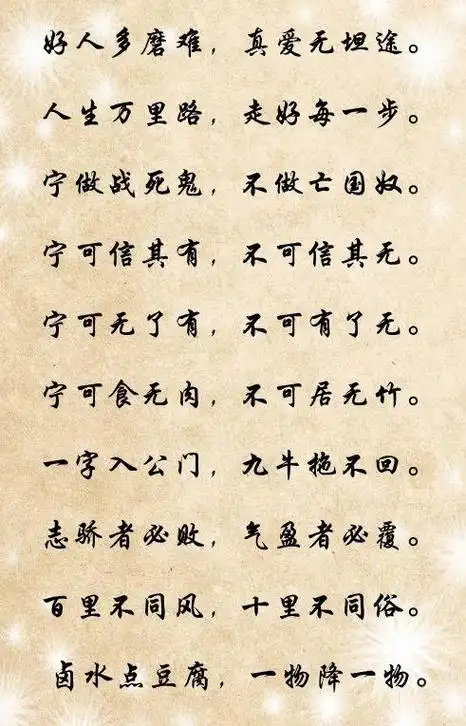 好人多磨难，真爱无坦途。
人生万里路，走好每一步。
宁做战死鬼，不做亡国奴。
宁可信其有，不可信其无。
宁可无了有，不可有了无。
宁可食无肉，不可居无竹。
一字入公门，九牛拖不回。
志骄者必败，气盈者必覆。
百里不同风，十里不同俗。
卤水点豆腐，一物降一物。